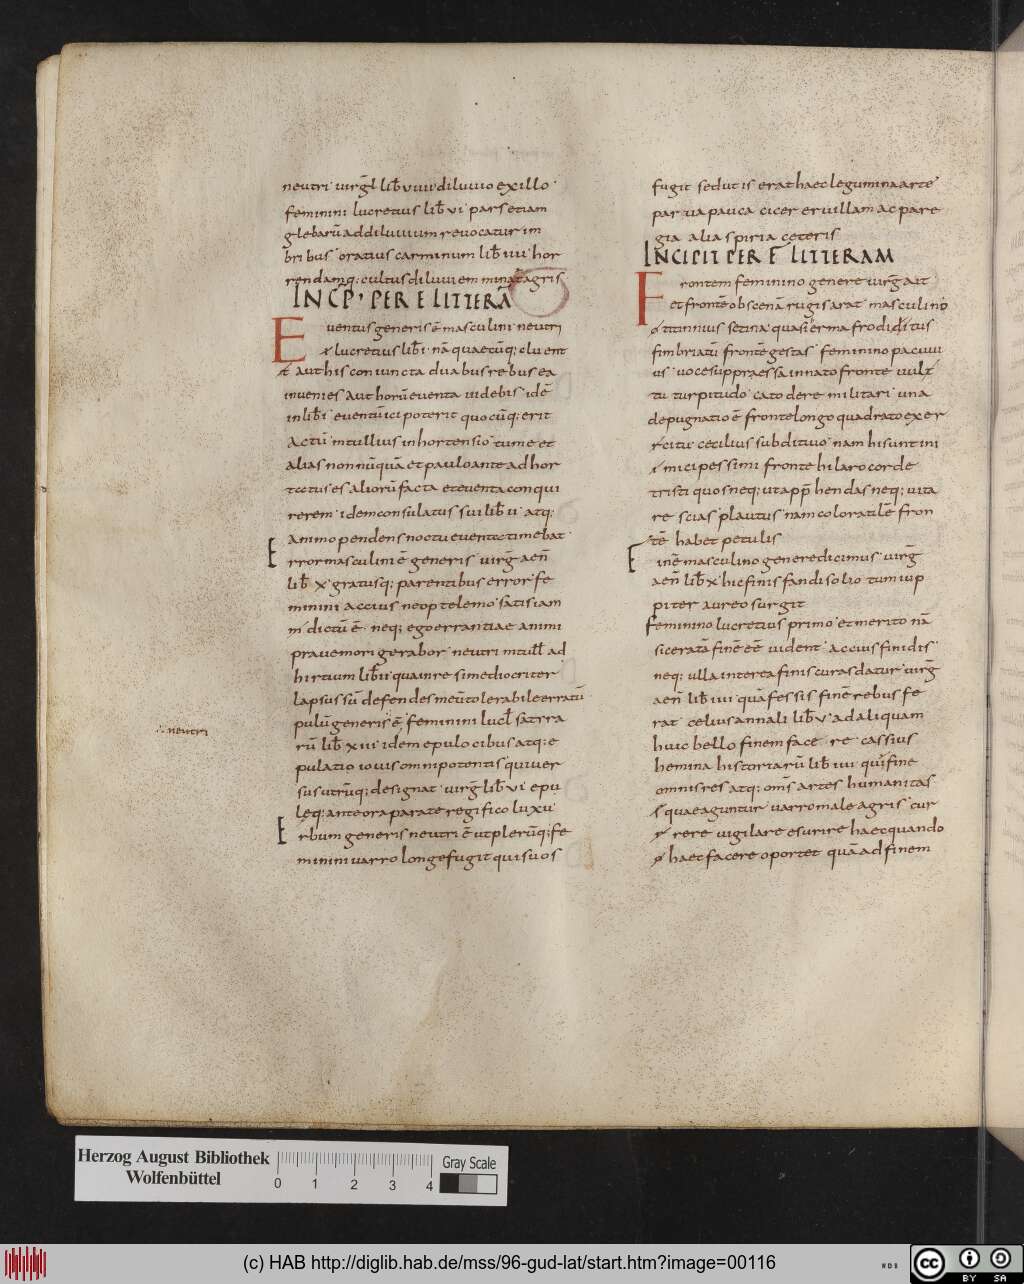 neutri uirgł lib̄ viiii diluuio exillo
feminini lucretius lib̄ vi pars etiam
glebarū ad diluuium reuocatur im
bribus oratius carminum lib̄ iiii hor
rendamq; cultus diluuiem minat agris
INCP̄ PER E LITTERĀ
Euentus generis ē masculini neutri
lucretius lib̄ i nā quaecūq; cluent
aut his coniuncta duabus rebus ea
inuenies aut horū euenta uidebis idē
in lib̄ i euentū ici poterit quocūq; erit
actū m tullius in hortensio tu me et
alias non nūquā et paulo ante ad hor
tatus es aliorū facta et euenta conqui
rerem idem consulatus sui lib̄ ii atq;
animo pendens noctu euenta timebat
Error masculini ē generis uirḡ aeñ
lib̄ x gratusq; parentibus error fe
minini accius neoptelemo satis iam
dictū ē neq; ego errantiae animi
praue morigerabor neutri m tułł ad
hirtium lib̄ ii qua in re si mediocriter
lapsus sū defendes meū tolerabile erratū
pulū generis ē; feminini lucł satrra
rū lib̄ xiii idem epulo cibus atq; e
pulatio iouis omnipotentis quiuer
sus utrūq; designat uirḡ lib̄ vi epu
leq; ante ora parate regifico luxu
Erbum generis neutri ē ut plerūq; fe
minini uarro longe fugit qui suos
neutri
fugit sed ut is erat haec legumina arte
parua pauca cicer eruillam ac pare
gia alia spiria ceteris
INCIPIT PER F LITTERAM
Frontem feminino genere uirḡ ait
et frontē obscenā rugis arat masculino
titinnius setina quasi erma frodiditus
fimbriatū frontē gestas feminino pacuui
us uoce suppraessa innato fronte uult
tu turpitudo cato de re militari una
depugnatio ē fronte longo quadrato exer
citu cecilius subdituo nam hi sunt ini
mici pessimi fronte hilaro corde
tristi quos neq; ut app̄hendas neq; uita
re scias plautus nam coloratilē fron
tē habet petulis
Finē masculino genere dicimus uirḡ
aeñ lib̄ x hic finis fandi solio tum iup
piter aureo surgit
Feminino lucretius primo et merito nā
si ceratā finē eē uident accius finidis
neq; ulla interea finis curas datur uirḡ
aeñ lib̄ iii quā fessis finē rebus fe
rat celius annali lib̄ v ad aliquam
huic bello finem facere cassius
hemina historiarū lib̄ iiii qui fine
omnis res atq; oms̄ artes humanitas
quae aguntur uarro male agris cur
rere uigilare esurire haec quando
haec facere oportet quā ad finem
Herzog August Bibliothek
Wolfenbüttel
0 1 2 3 4
Gray Scale
(c) HAB http://diglib.hab.de/mss/96-gud-lat/start.htm?image=00116
WDB
cc
BY SA